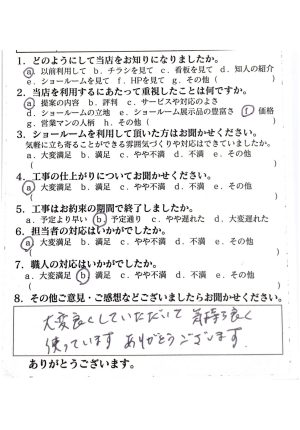 1. どのようにして当店をお知りになりましたか。
a. 以前利用して b. チラシを見て c. 看板を見て d. 知人の紹介
e. ショールームを見て f. HPを見て g. その他 (
2. 当店を利用するにあたって重視したことは何ですか。
a. 提案の内容 b. 評判 c. サービスや対応のよさ
d. ショールームの立地 e. ショールーム展示品の豊富さ f. 価格
g. 営業マンの人柄 h. その他 (
3. ショールームを利用して頂いた方はお聞かせください。
気軽に立ち寄ることができる雰囲気づくりや対応はできていましたか。
a. 大変満足 b. 満足 c. やや不満 d. 不満 e. その他
(
4. 工事の仕上がりについてお聞かせください。
a. 大変満足 b. 満足 c. やや不満 d. 不満 e. その他
(
5. 工事はお約束の期間で終了しましたか。
a. 予定より早い b. 予定通り c. やや遅れた d. 大変遅れた
6. 担当者の対応はいかがでしたか。
a. 大変満足 b. 満足 c. やや不満 d. 不満 e. その他
(
7. 職人の対応はいかがでしたか。
a. 大変満足 b. 満足 c. やや不満 d. 不満 e. その他
(
8. その他ご意見・ご感想などございましたらお聞かせください。
大変良くしていただいて 気持ち良く
使っています ありがとうございます.
ありがとうございます。